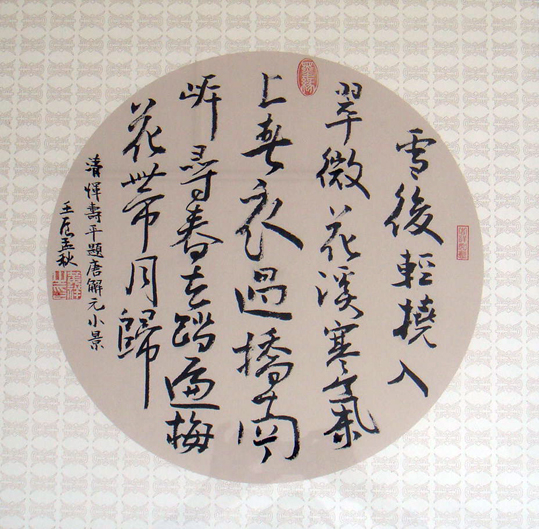 雪後輕橈入
翠微花溪寒氣
上春衣過橋南
岸尋春去踏遍梅
花帶月歸
清惲壽平題唐解元小景
壬辰孟秋